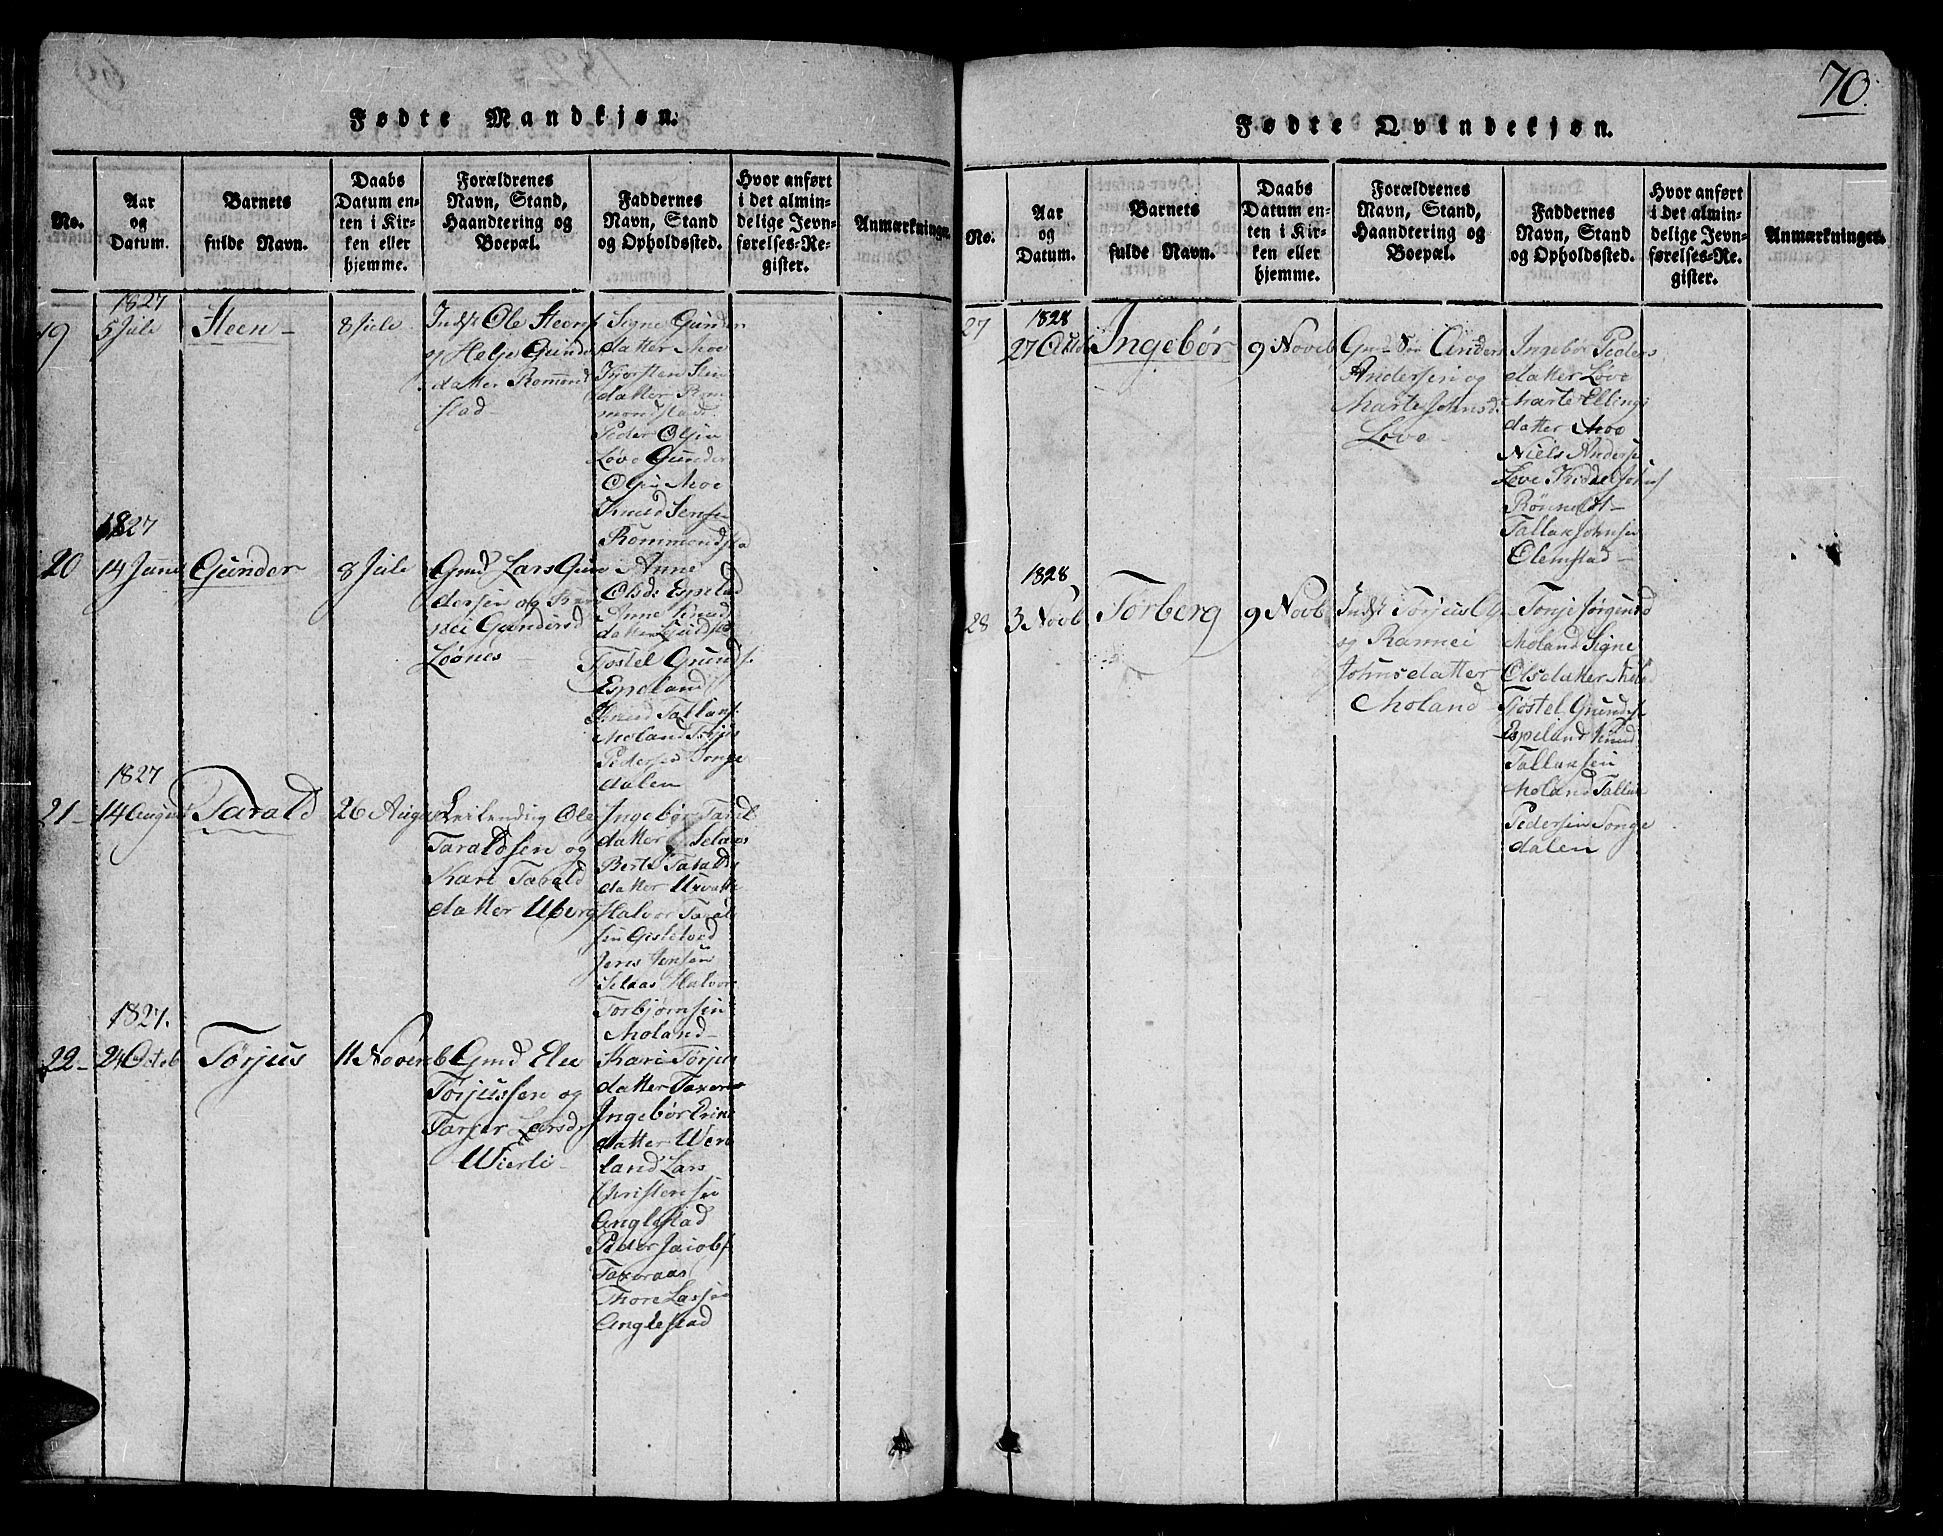 Fødte Mandkjøn.
No.
Aar
og
Datum.
Barnets
fulde Navn.
Daabs
Datum en-
ten i Kir-
ken eller
hjemme.
Forældrenes
Navn, Stand,
Haandtering og
Boepæl.
Faddernes
Navn, Stand
og Opholdssted.
Hvor anført
i det almin-
delige Jevn-
førelses-Re-
gister.
Anmærkninger.
19
1827
5 Jule
Steen
8 Jule
Indst Ole Steens
og Helge Gunder
datter Rommond
stad
Signe Gunder
datter Moe
datter Rom
mondstad
Peder Olsen
Løve Gunder
Olsen Moe
Knud Jensen
Rommondstad
20
1827
14 Junii
Gunder
8 Jule
Gmd Lars Gun
dersen og
Gundersd
Løvnes
Anne
Olsd Espelad
Anne Knud
datter
Tostel Gunds
Espeland
Knud Tallaks
Moland Torjus
Pedersen Songe
dalen
21
1827
14 August
Tarald
26 August
Leilending Ole
Taraldsen og
Kari Tarald
datter Uberg
Ingebør Tarald
datter Selaas
Berte Taralds
datter Uxvatte
Halvor Tarald
sen Gislelord
Jens Jensen
Selaas Halvor
Torbjørnsen
Moland
22
1827.
24 Octob
Tørjus
11 Novemb
Gmd Elev
Tørjussen og
Tarjer Larsd
Wierli
Kari Tørjus
datter Taxeraas
Ingebør Erins
datter Were
land Lars
Christensen
Anglestad
Peder Jacobs
Taxeraas
Thore Larsen
Anglestad
70.
Fødte Qvindekjøn.
No.
Aar
og
Datum.
Barnets
fulde Navn.
Daabs
Datum en-
ten i Kir-
ken eller
hjemme.
Forældrenes
Navn, Stand,
Haandtering og
Boepæl.
Faddernes
Navn, Stand
og Opholdssted.
Hvor anført
i det almin-
delige Jevn-
førelses-Re-
gister.
Anmærkninger.
27
1828
27 Octob
Ingebør
9 Novb
Anders
Andersen og
Marte Johnsd
Løve
Ingebør Peders
datter Løve
Marte Ellings
datter Moe
Niels Anders
Løve Kiddel Johns
Rønnedt
Tallak Johnsen
Olemstad
28
1828
3 Novb
Torberg
9 Novb
Indst Torjus Ols
og Rannei
Johnsdatter
Moland
Tonje Jørgensd
Moland Signe
Olsdatter Molad
Tostel Gunds
Espeland Knud
Tallaksen
Moland Tallak
Pedersen Songe
dalen